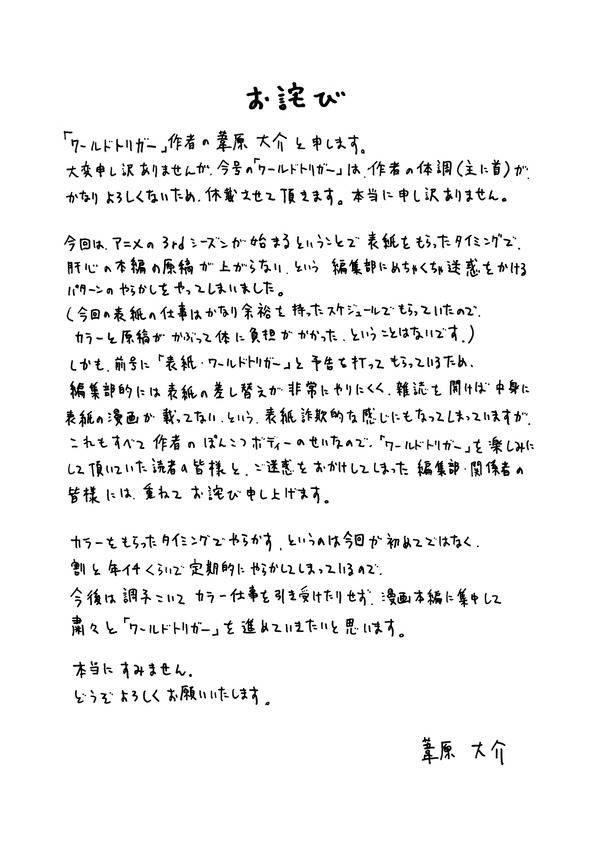 お詫び
「ワールドトリガー」作者の葦原 大介と申します。
大変申し訳ありませんが、今号の「ワールドトリガー」は、作者の体調(主に首)が、
かなりよろしくないため、休載させて頂きます。本当に申し訳ありません。
今回は、アニメの3rdシーズンが始まるということで表紙をもらったタイミングで、
肝心の本編の原稿が上がらない、という 編集部にめちゃくちゃ迷惑をかける
パターンのやらかしをやってしまいました。
(今回の表紙の仕事はかなり余裕を持ったスケジュールでもらっていたので、
カラーと原稿がかぶって体に負担がかかった、ということはないです。)
しかも、前号に「表紙・ワールドトリガー」と予告を打ってもらっているため、
編集部的には表紙の差し替えが非常にやりにくく、雑誌を開けば中身に
表紙の漫画が載ってない、という、表紙詐欺的な感じにもなってしまっていますが、
これもすべて作者のぽんこつボディーのせいなので、「ワールドトリガー」を楽しみに
して頂いていた読者の皆様と、ご迷惑をおかけしてしまった編集部・関係者の
皆様には、重ねてお詫び申し上げます。
カラーをもらったタイミングでやらかす、というのは今回が初めてではなく、
割と年イチくらいで定期的にやらかしてしまっているので、
今後は調子こいてカラー仕事を引き受けたりせず、漫画本編に集中して
粛々と「ワールドトリガー」を進めていきたいと思います。
本当にすみません。
どうぞよろしくお願いいたします。
葦原 大介